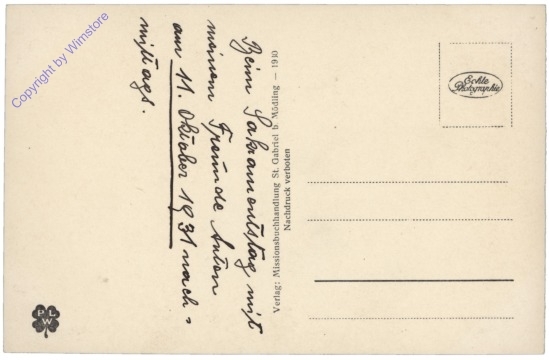 Beim Sakramentstag mit
meinem Freunde Anton
am 11. Oktober 1931 nach=
mittags.
Verlag: Missionsbuchhandlung St. Gabriel b. Mödling — 1910
Nachdruck verboten
Echte
Photographie
P L
W
Copyright by Wimstore